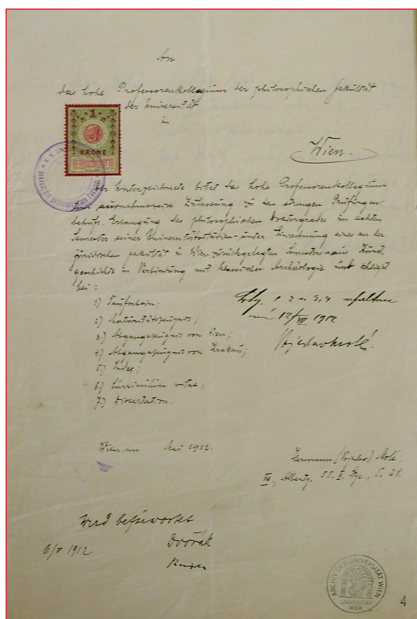 An
das hohe Professorenkollegium der philosophischen Fakultät
der Universität
in
Wien.
1
KRONE
Der Unterzeichnete bittet das hohe Professorenkollegium
um ausnahmsweise Zulassung zu den strengen Prüfungen
behufs Erlangung des philosophischen Doktorgrades im
Semester seiner Universitätsstudien unter Einrechnung eines an der
juridischen Fakultät in Wien zurückgelegten Semesters aus Kunst-
geschichte in Verbindung mit klassischer Archäologie und
bei:
1) Taufschein;
2) Maturitätszeugnis;
3) Abgangszeugnis von
4) Abgangszeugnis von Krakau;
5) Index;
6) Curriculum vitae;
7) Dissertation.
1 2 3, 4
1912
Wien, im Mai 1912.
Hermann
Wird befürwortet
6/V 1912 Dvořák
ARCHIV DER UNIVERSITÄT WIEN
4